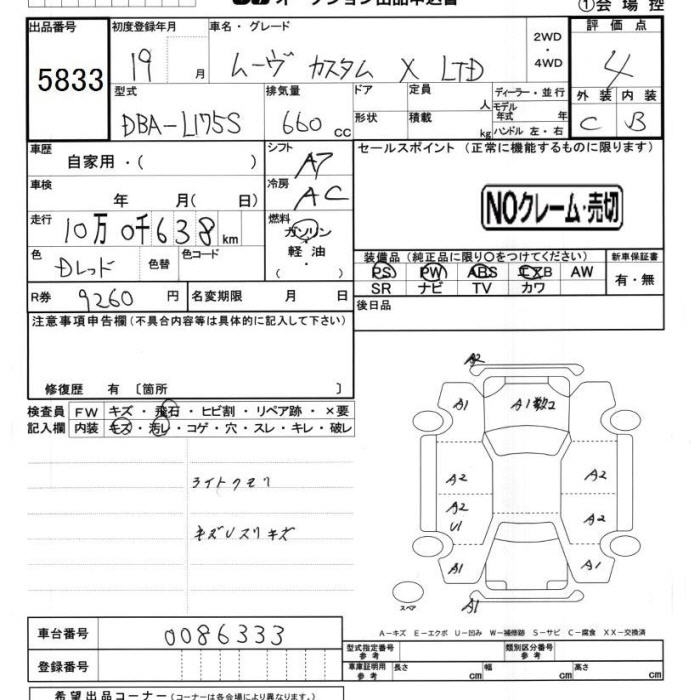 オークション出品申込書
①会場控
出品番号
5833
初度登録年月
19 月
車名・グレード
ムーヴ カスタム X LTD
2WD
・
4WD
評価点
4
外装 内装
C B
型式
DBA-L175S
排気量
660 cc
ドア
形状
定員
人
積載
kg
ディーラー・並行
モデル
年式 年
ハンドル 左・右
車歴
自家用・( )
シフト
AT
セールスポイント (正常に機能するものに限ります)
NOクレーム・売切
車検
年 月( 日)
冷房
AC
走行
10万0千638km
燃料
ガソリン
軽油
・( )
色
Dレッド
色替
色コード
装備品(純正品に限り○をつけてください)
PS PW ABS エアB AW
SR ナビ TV カワ
新車保証書
有・無
R券
9260 円
名変期限 月 日
後日品
注意事項申告欄(不具合内容等は具体的に記入して下さい)
修復歴 有 〔箇所 〕
検査員
記入欄
FW キズ・飛石・ヒビ割・リペア跡・×要
内装 キズ・汚レ・コゲ・穴・スレ・キレ・破レ
ライトクモリ
キズUスリキズ
A2
A1
A1数2
A1
A2
A2
A2
U1
A2
A1
A1
A1
スペア
A-キズ E-エクボ U-凹み W-補修跡 S-サビ C-腐食 XX-交換済
車台番号
0086333
登録番号
型式指定番号
参考
類別区分番号
参考
車庫証明用
参考
長さ cm
幅 cm
高さ cm
希望出品コーナー(コーナーは各会場により異なります。)